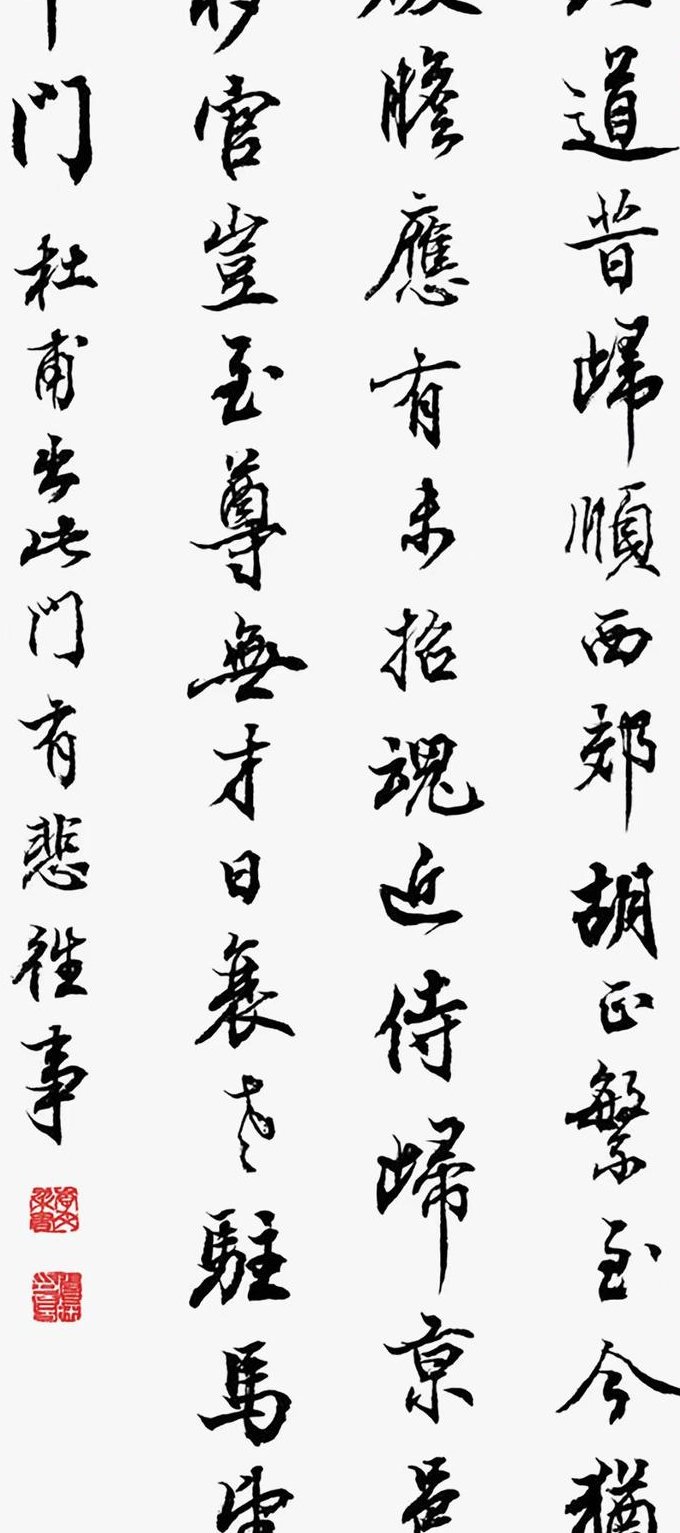 道昔歸順西郊胡正繁至今猶
膽應有未招魂近侍歸京邑
移官豈至尊無才日衰老駐馬望
門 杜甫出此門有悲往事